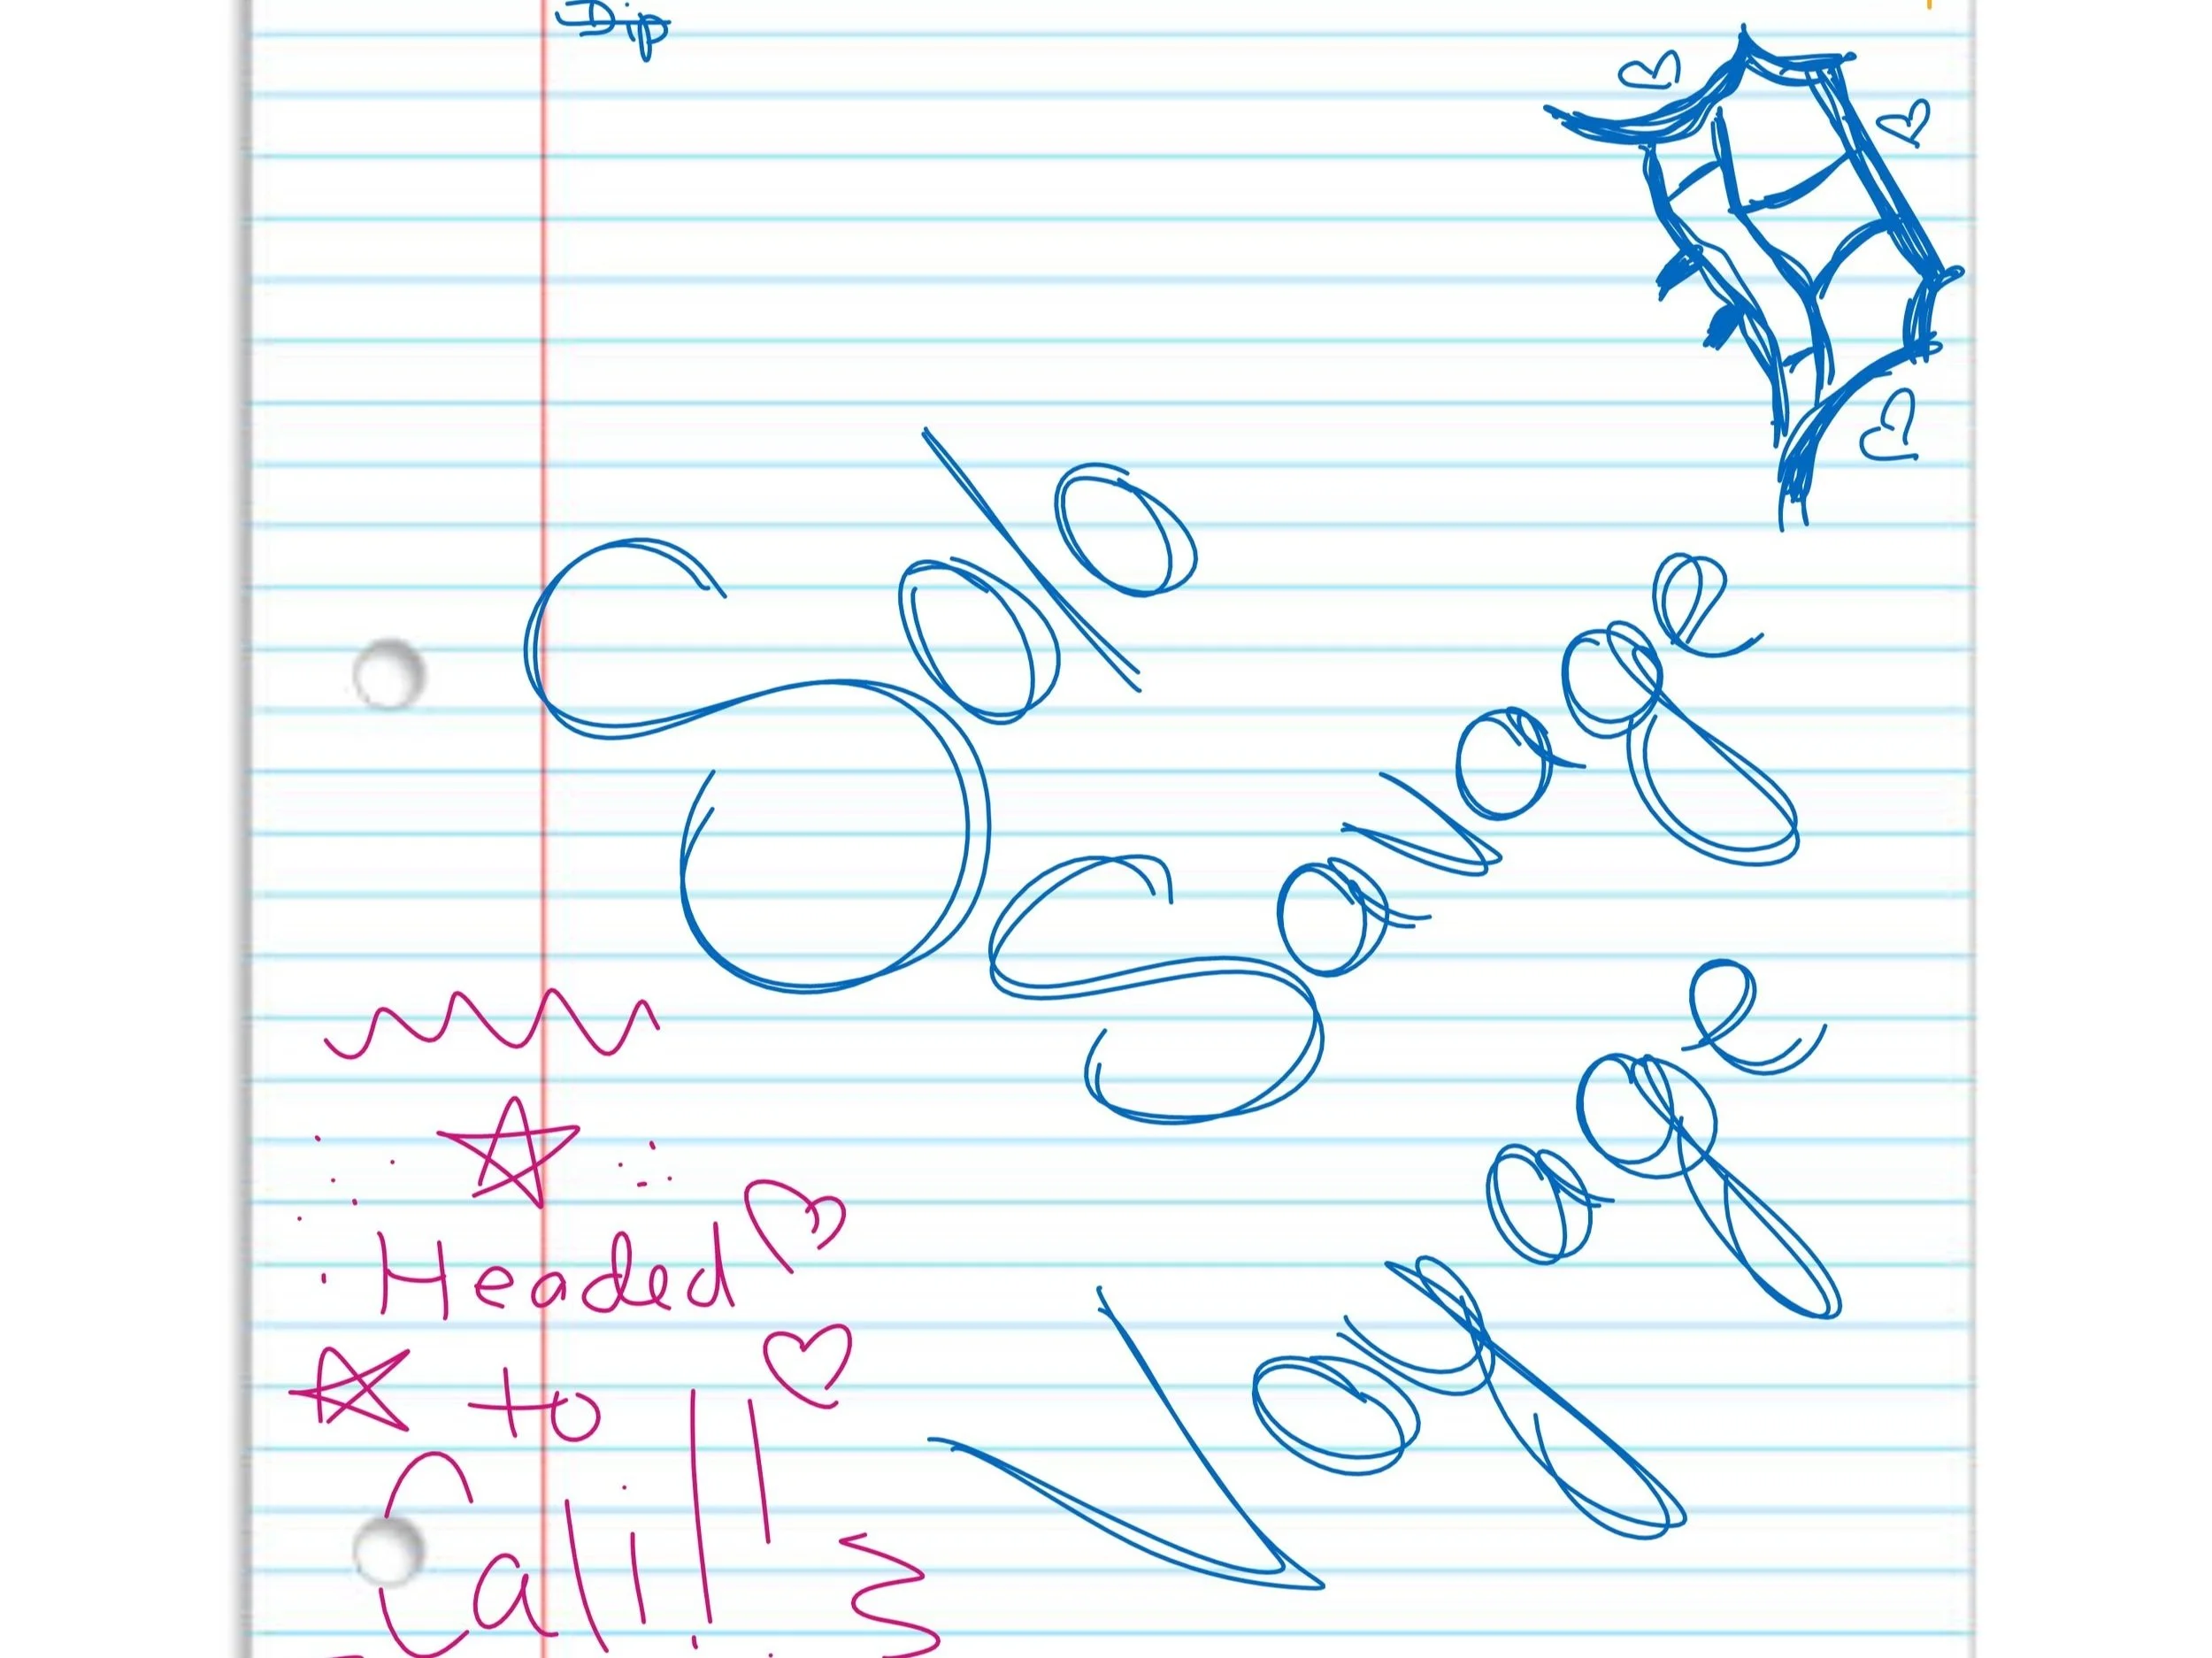 Dip
Solo
Savage
Voyage
Headed
to
Cali!!